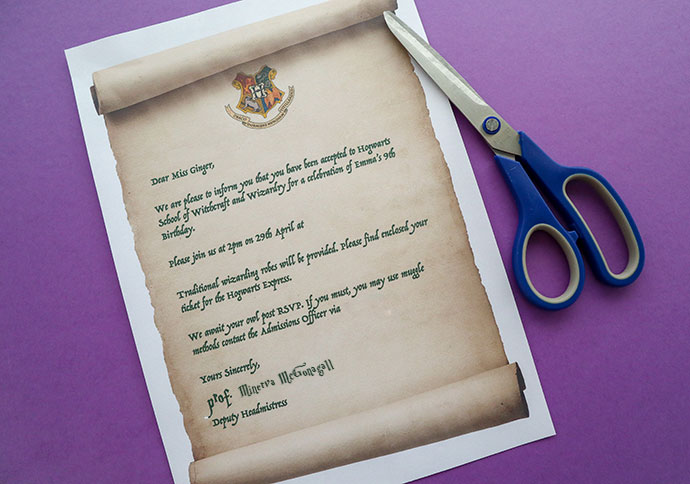 Dear Miss Ginger,
We are please to inform you that you have been accepted to Hogwarts
School of Witchcraft and Wizardry for a celebration of Emma's 9th
Birthday.
Please join us at 2pm on 29th April at
Traditional wizarding robes will be provided. Please find enclosed your
ticket for the Hogwarts Express.
We await your owl post RSVP. If you must, you may use muggle
methods contact the Admissions Officer via
Yours Sincerely,
prof. Minerva McGonagall
Deputy Headmistress